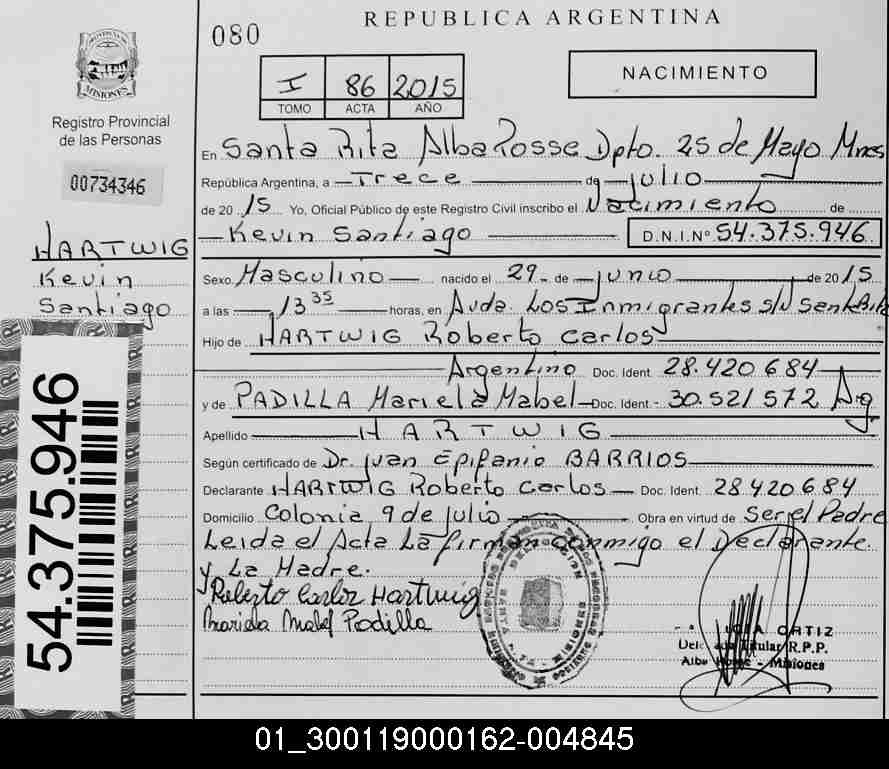 REPUBLICA ARGENTINA
080
PROVINCIA DE
MISIONES
Registro Provincial
de las Personas
00734346
I 86 2015
TOMO ACTA AÑO
NACIMIENTO
En Santa Rita Alba Posse Dpto. 25 de Mayo Mnes
República Argentina, a Trece de julio
de 2015 Yo, Oficial Público de este Registro Civil inscribo el Nacimiento de
Kevin Santiago D.N.I.Nº 54.375.946
HARTWIG
Kevin
Santiago
Sexo Masculino nacido el 29 de junio de 2015
a las 13 35 horas, en Avda Los Inmigrantes s/N Santa Rita
Hijo de HARTWIG Roberto Carlos
Argentino Doc. Ident. 28.420 684
y de PADILLA Mariela Mabel Doc. Ident. 30.521 572 Arg
Apellido HARTWIG
Según certificado de Dr. Juan Epifanio BARRIOS
Declarante HARTWIG Roberto Carlos Doc. Ident. 28420684
Domicilio Colonia 9 de julio Obra en virtud de Ser el Padre
Leida el Acta La firman conmigo el Declarante
y La Madre.
Roberto Carlos Hartwig
Mariela Mabel Padilla
ORTIZ
Titular R.P.P.
Alba Posse - Misiones
54.375.946
01_300119000162-004845